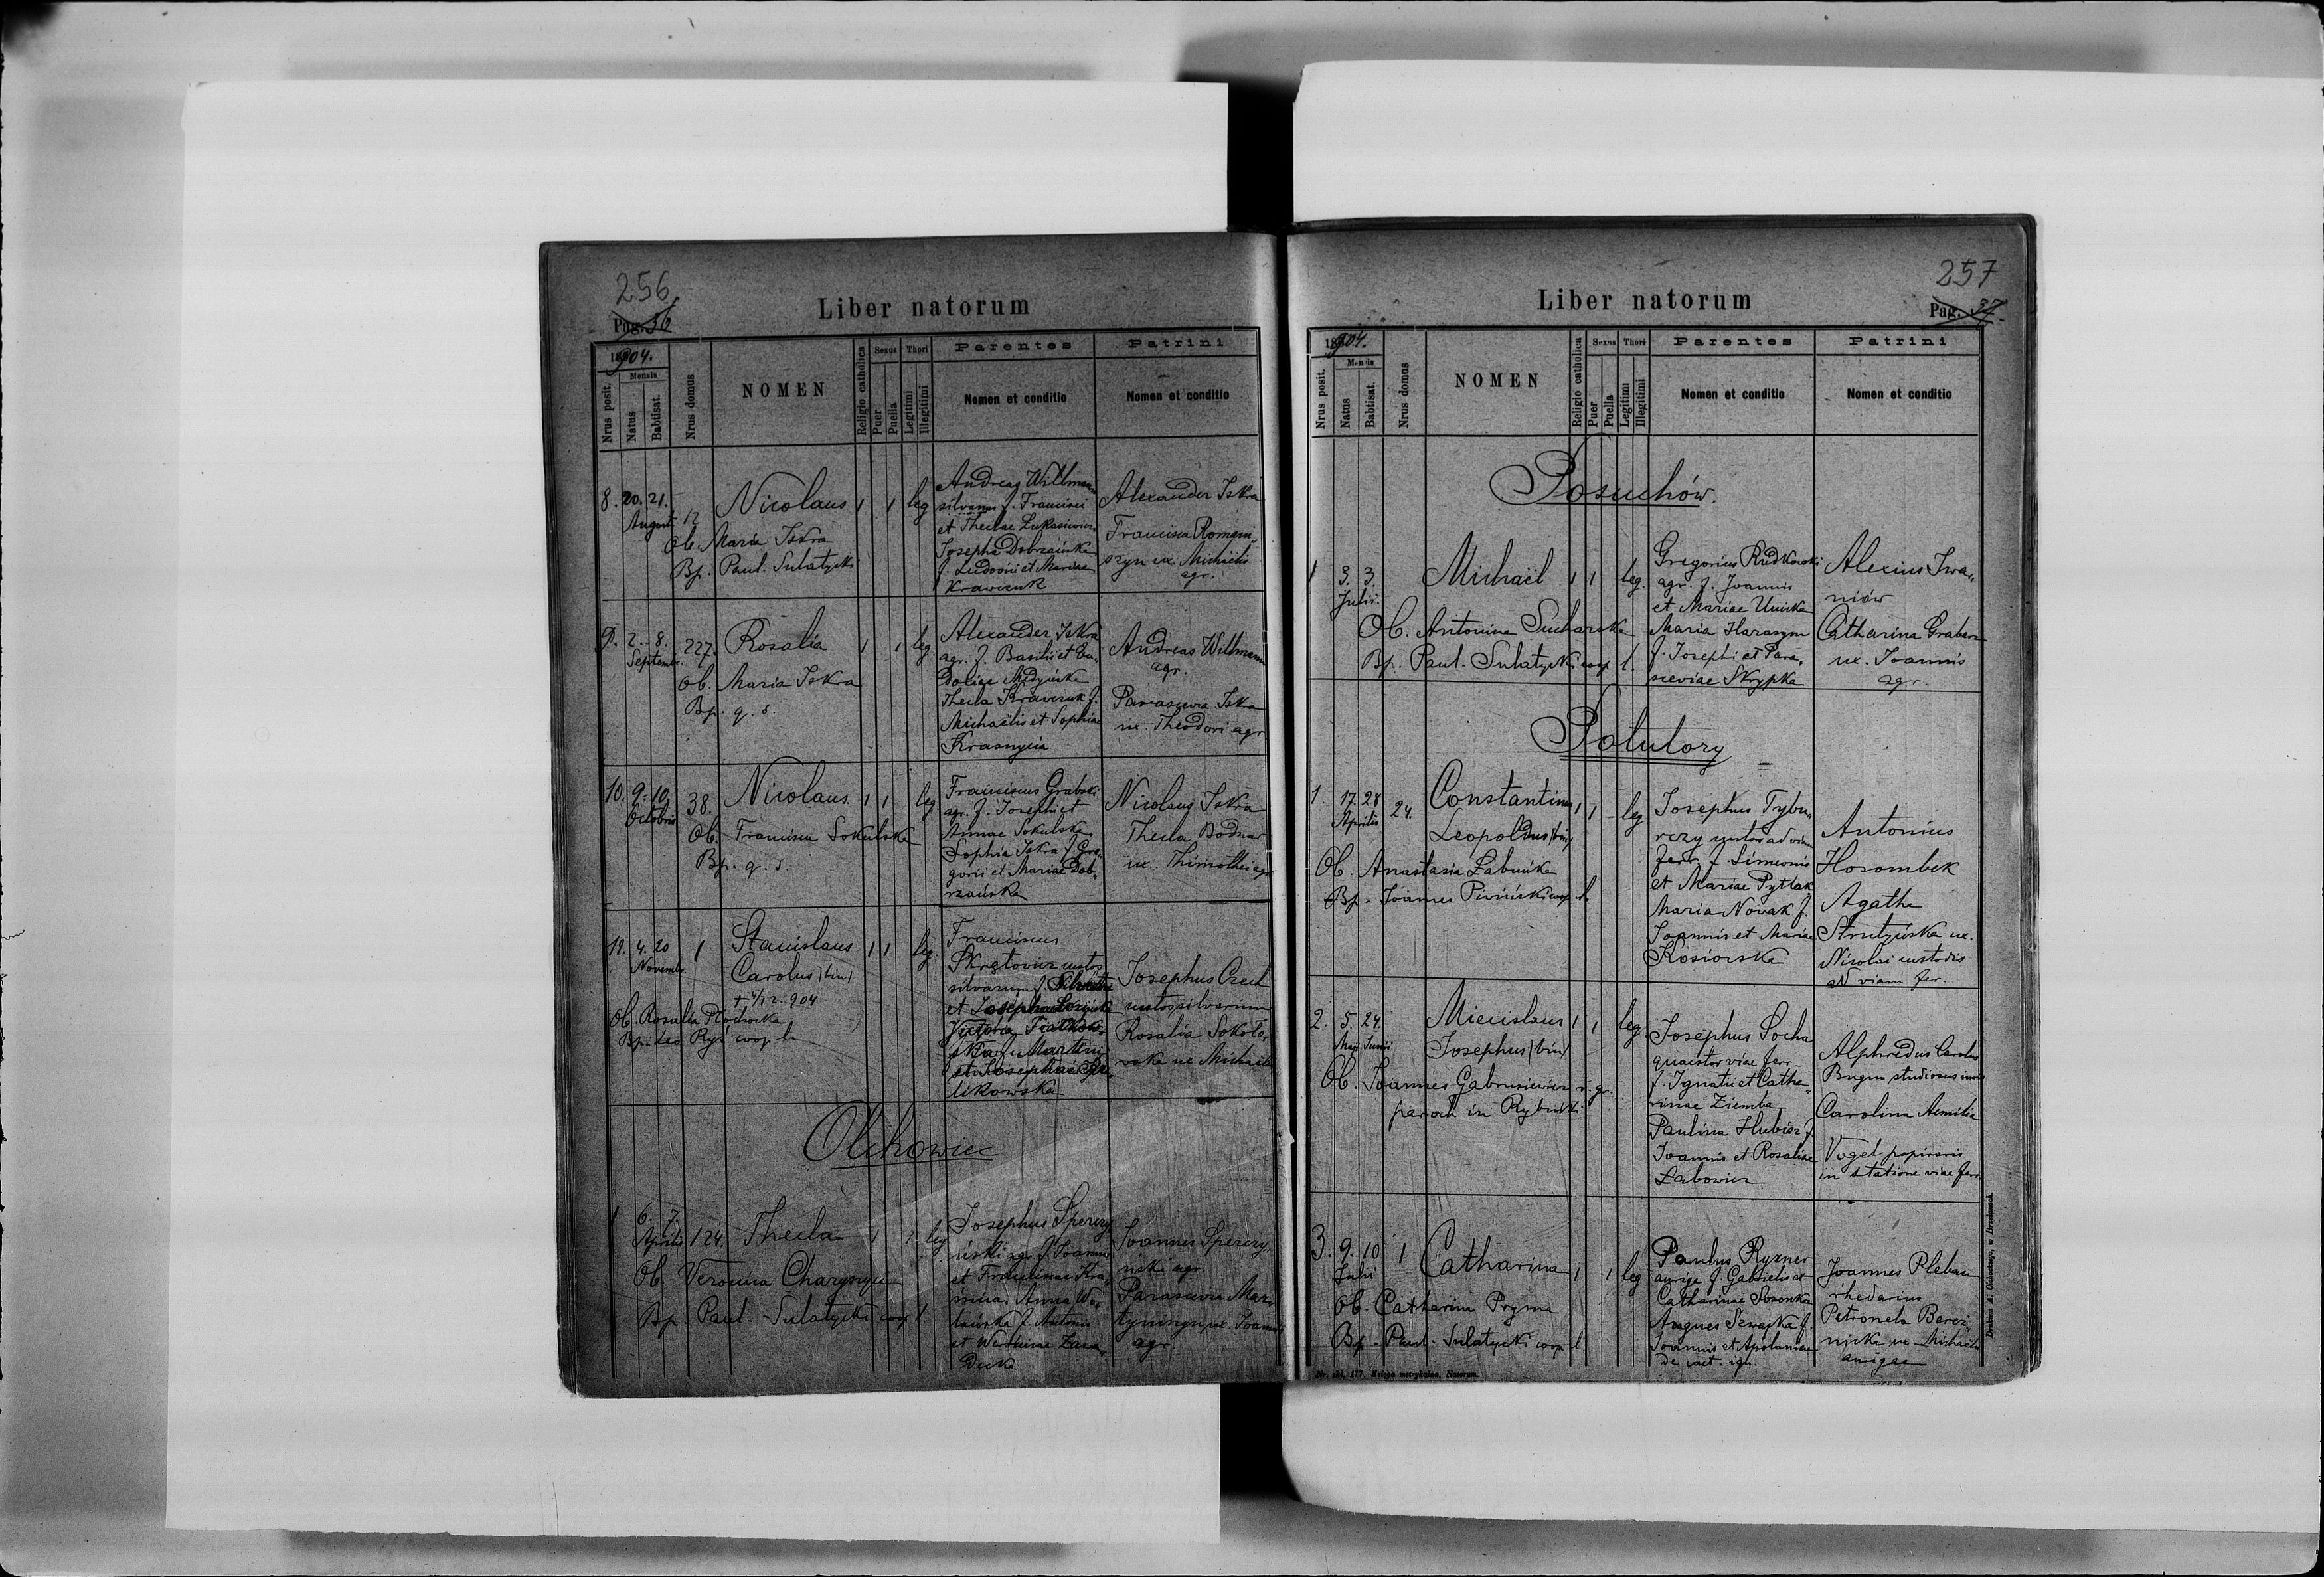 256
Pag. 36
Liber natorum
1904.
Mensis
Nrus posit.
Natus
Babtisat.
Nrus domus
NOMEN
Religio catholica
Sexus
Puer
Puella
Thori
Legitimi
Illegitimi
Parentes
Nomen et conditio
Patrini
Nomen et conditio
8. 20. 21. August 12 Nicolaus 1 1 leg
Ob. Maria Iskra
Bp. Paul. Sulatycki
Andreas Willmann
silvanus f. Francisci
et Theclae Lukasiewicz
Josepha Dobrzańska
f. Ludovici et Mariae
Krawczuk
Alexander Iskra
Francisca Romani-
szyn ux. Michaelis
agr.
9. 2. 8. Septemb. 227. Rosalia 1 1 leg.
Ob. Maria Iskra
Bp. q. s.
Alexander Iskra
agr. f. Basilii et Eu-
dociae
Thecla Krawczuk f.
Michaëlis et Sophiae
Krasnycia
Andreas Willmann
agr.
Parascevia Iskra
ux. Theodori agr.
10. 9. 10. Octobris 38. Nicolaus 1 1 leg
Ob. Francisca Sokulska
Bp. q. s.
Franciscus Grabski
agr. f. Josephi et
Annae Sokulska
Sophia Iskra f. Gre-
gorii et Mariae Dob-
rzańska
Nicolaus Iskra
Thecla Bodnar
ux. Thimothei agr
11. 4. 20 Novemb. 1 Stanislaus 1 1 leg.
Carolus (bin)
† 4/12. 904
Ob. Rosalia
Bp. Leo Ryś coop. l.
Franciscus
Skrętovicz custos
silvarum f.
et Josephae
Victoria
f. Martini
et Josephae
likowska
Josephus Czech
custos silvarum
Rosalia Sokoło-
vska ux Michaelis
Olchowiec
1 6. 7. Aprilis 124. Thecla 1 1 leg
Ob. Veronica
Bp. Paul. Sulatycki coop l.
Josephus Sperczy-
ński agr. f. Joannis
et Franciscae Kra-
Anna Wo-
f. Antonii
et
duka
Joannes Sperczy-
nski agr.
Parascevia Mar-
tynyszyn ux. Joannis
agr.
257
Pag. 37.
Liber natorum
1904.
Mensis
Nrus posit.
Natus
Babtisat.
Nrus domus
NOMEN
Religio catholica
Sexus
Puer
Puella
Thori
Legitimi
Illegitimi
Parentes
Nomen et conditio
Patrini
Nomen et conditio
Posuchów.
1 3. 3. Julii. Michaël 1 1 leg.
Ob. Antonina Sucharska
Bp. Paul. Sulatycki coop l.
Gregorius Rudkowski
agr. f. Joannis
et Mariae Unicka
Maria Harasym
f. Josephi et Para-
sceviae Skrypka
Alexius Iwa-
niów
Catharina Grabar
ux. Joannis
agr.
Potutory
1. 17. 28 Aprilis 24. Constantinus 1 1 leg
Leopoldus (bin)
Ob. Anastasia Łabuńka
Bp. Joannes Piwiński coop. l.
Josephus Tybu-
rczy custos ad viam
ferr. f. Simeonis
et Mariae Pytlak
Maria Novak f.
Joannis et Mariae
Kosiorska
Antonius
Hosombek
Agatha
Strutyńska ux.
Nicolai custodis
ad viam fer.
2. 5. 24. Maji Junii Miecislaus 1 1 leg.
Josephus (bin)
Ob. Joannes Gabrusiewicz r. gr.
paroch in Rybniki
Josephus Socha
quaestor viae ferr.
f. Ignatii et Catha-
rinae Ziemba
Paulina Hubisz f.
Joannis et Rosaliae
Łabowicz
Alphredus Carolus
studiosus
Carolina Aemilia
Vogel
in statione viae ferr.
3. 9. 10 Julii 1 Catharina 1 1 leg
Ob. Catharina Pryma
Bp. Paul. Sulatycki coop. l
Paulus Ryzner
auriga f. Gabrielis et
Catharinae Sosonka
Agnes Szwajka f.
Joannis et Apoloniae
de caet. ign.
Joannes Pleban
rhedarius
Petronela Bereź-
nicka ux Michaelis
aurigae
Nr. skl. 177. Księga metrykalna. Natorum.